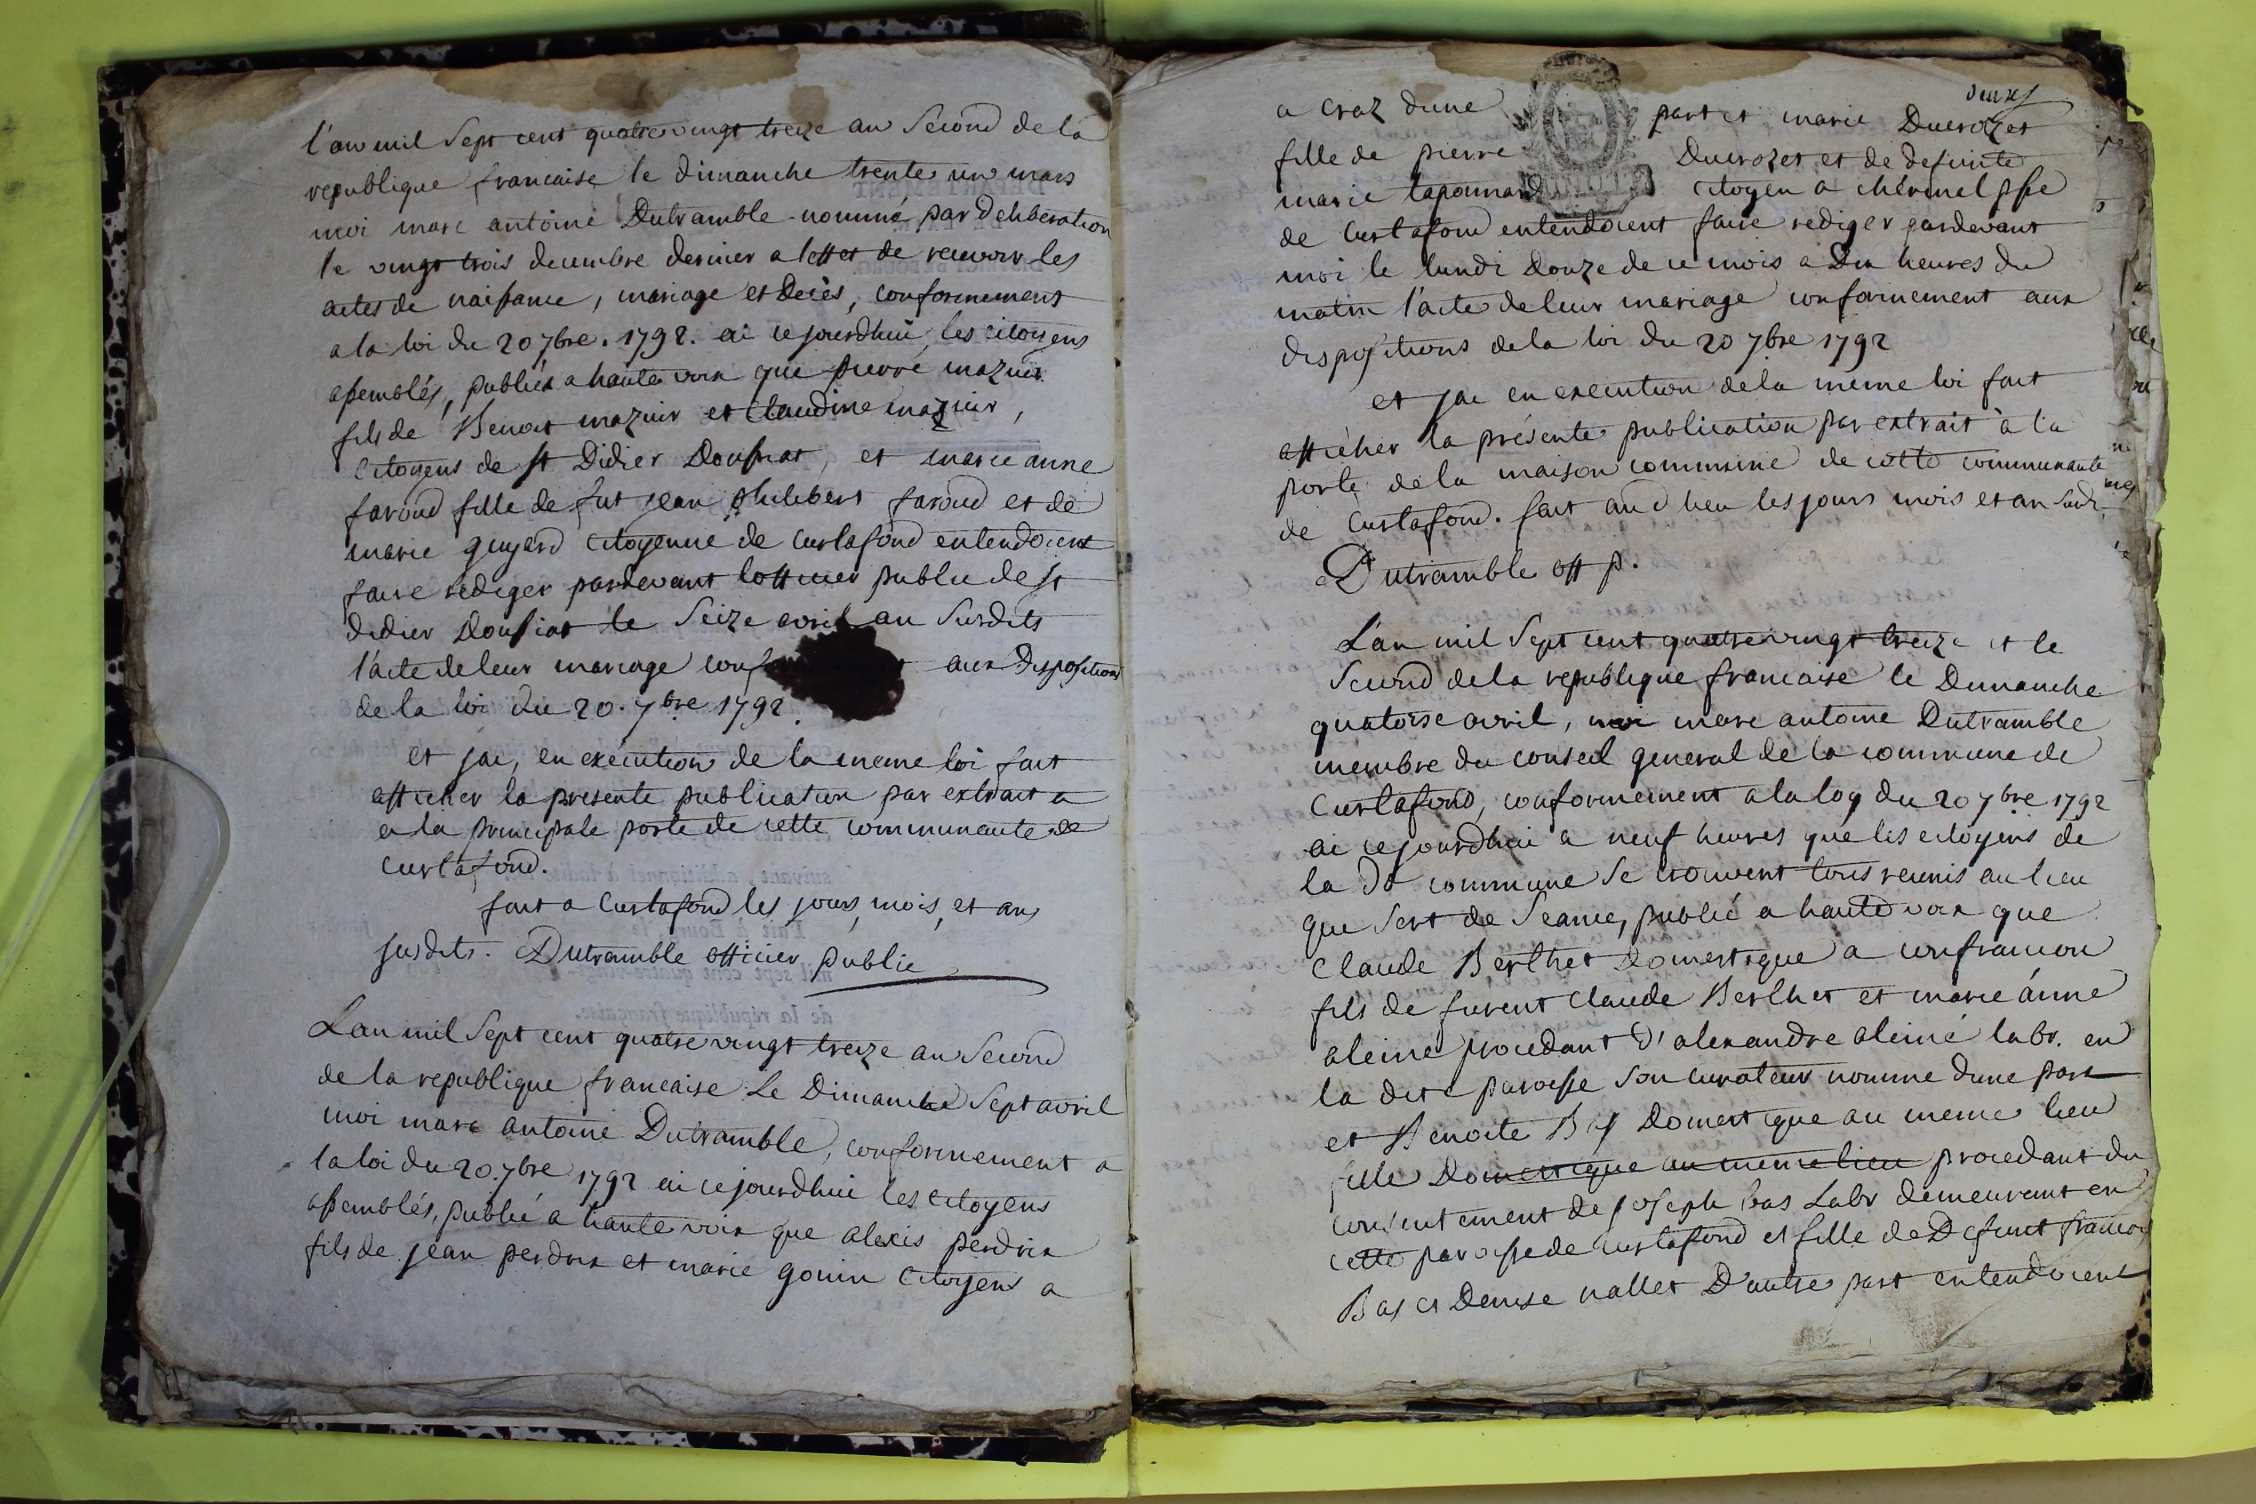 l'an mil sept cent quatre vingt treize an second de la
republique francaise le dimanche trente un mars
moi marc antoine Dutramble nommé par deliberation
le vingt trois decembre dernier a leffet de recevoir les
actes de naissance, mariage et decès, conformement
a la loi du 20 7bre. 1792. ai cejourdhui, les citoyens
assemblés, publiés a haute voix que pierre mazuir
fils de Benoit mazuir et Claudine mazuir,
citoyens de st Didier Doussiat, et marie anne
faroud fille de fut jean philibert faroud et de
marie guyard citoyenne de Curtafond entendoient
faire rediger pardevant lofficier public de st
didier Doussiat le seize avril an susdits
l'acte de leur mariage conf aux disposition
de la loi du 20. 7bre 1792.
et jai, en execution de la meme loi fait
afficher la presente publication par extrait a
a la principale porte de cette communaute de
curtafond.
fait a Curtafond les jours, mois, et ans
susdits. Dutramble officier public
Lan mil sept cent quatre vingt treize an second
de la republique francaise. Le Dimanche sept avril
moi marc antoine Dutramble, conformement a
la loi du 20. 7bre 1792 ai cejourdhui les citoyens
assemblés, publié a haute voix que alexis perdrix
fils de jean perdrix et marie gouin citoyens a
a craz dune part et marie Ducrozet
fille de pierre Ducrozet et de defunte
marie taponnard citoyen a chevinel psse
de Curtafond entendoient faire rediger pardevant
moi le lundi douze de ce mois a dix heures du
matin l'acte de leur mariage conformement aux
dispositions de la loi du 20 7bre 1792
et jai en execution de la meme loi fait
afficher la présente publication par extrait à la
porte de la maison commune de cette communauté
de Curtafond. fait aud lieu les jours mois et an susd.
Dutramble off p.
L'an mil sept cent quatre vingt treize et le
second de la republique francaise le Dimanche
quatorse avril, moi marc antoine Dutramble
membre du conseil general de la commune de
Curtafond, conformement a la loy du 20 7bre 1792
ai cejourdhui a neuf heures que les citoyens de
la dte commune se trouvent tous reunis au lieu
que sert de seance, publié a haute voix que
Claude Berthet Domestique a confrancon
fils de furent Claude Berthet et marie anne
aleine procedant d'alexandre aleine labr. en
la dite paroisse son curateur nomme dune part
et Benoite Bas Domestique au meme lieu
fille Domestique au meme lieu procedant du
consentement de joseph bas Labr demeurant en
cette paroisse de Curtafond et fille de Defunt francois
Bas et Denise nallet D'autre part entendoient